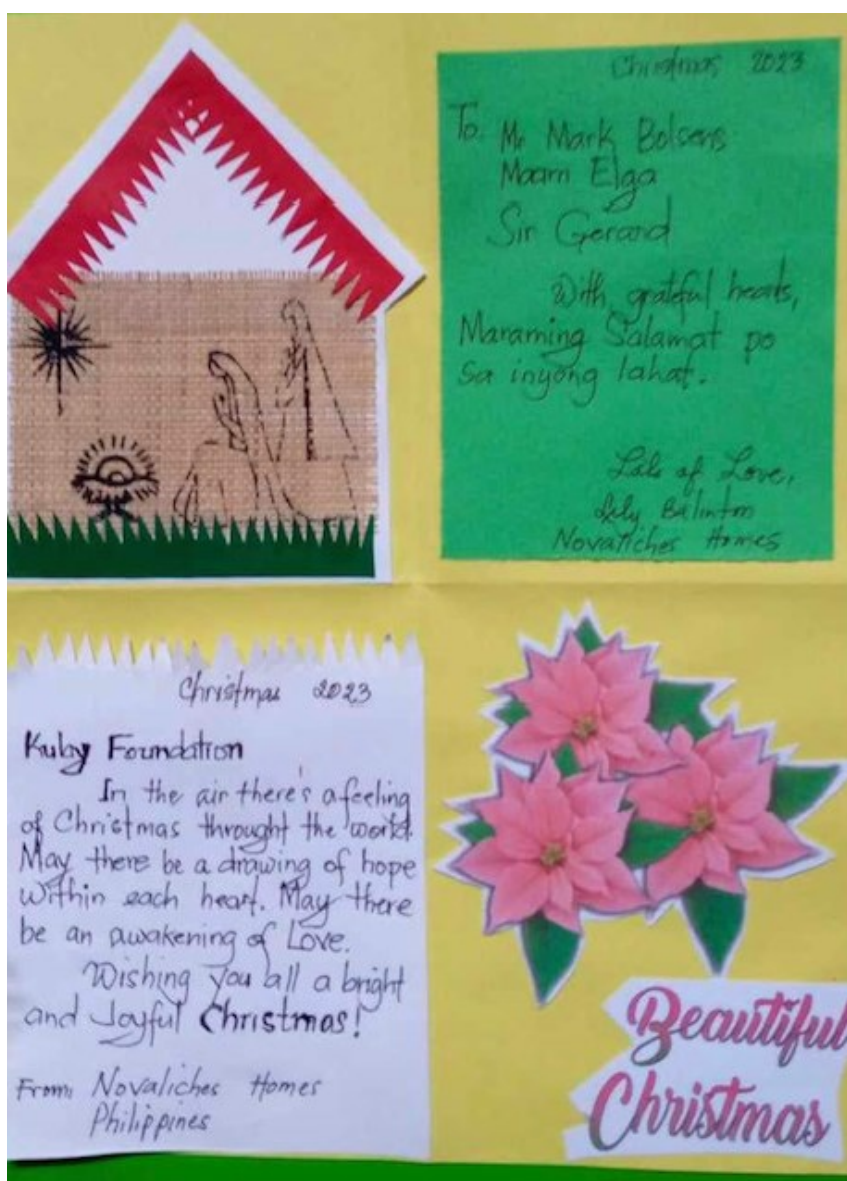 Christmas 2023
To. Mr Mark Bolsens
Maam Elga
Sir Gerard
With grateful hearts,
Maraming Salamat po
sa inyong lahat.
Lots of Love,
Lily Balinton
Novaliches Homes
Christmas 2023
Kuby Foundation
In the air there's a feeling
of Christmas throught the world.
May there be a drawing of hope
within each heart. May there
be an awakening of Love.
Wishing you all a bright
and Joyful Christmas!
From: Novaliches Homes
Philippines
Beautiful
Christmas